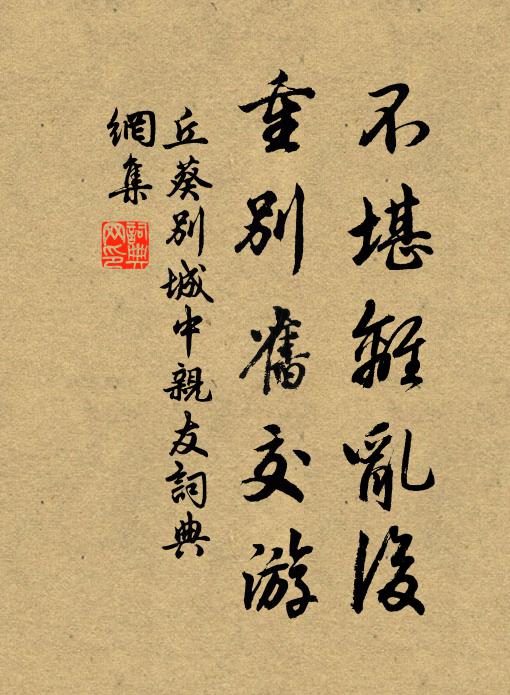 不堪離亂後
重別舊交游
丘葵別城中親友詞典
網集
詞典
网印